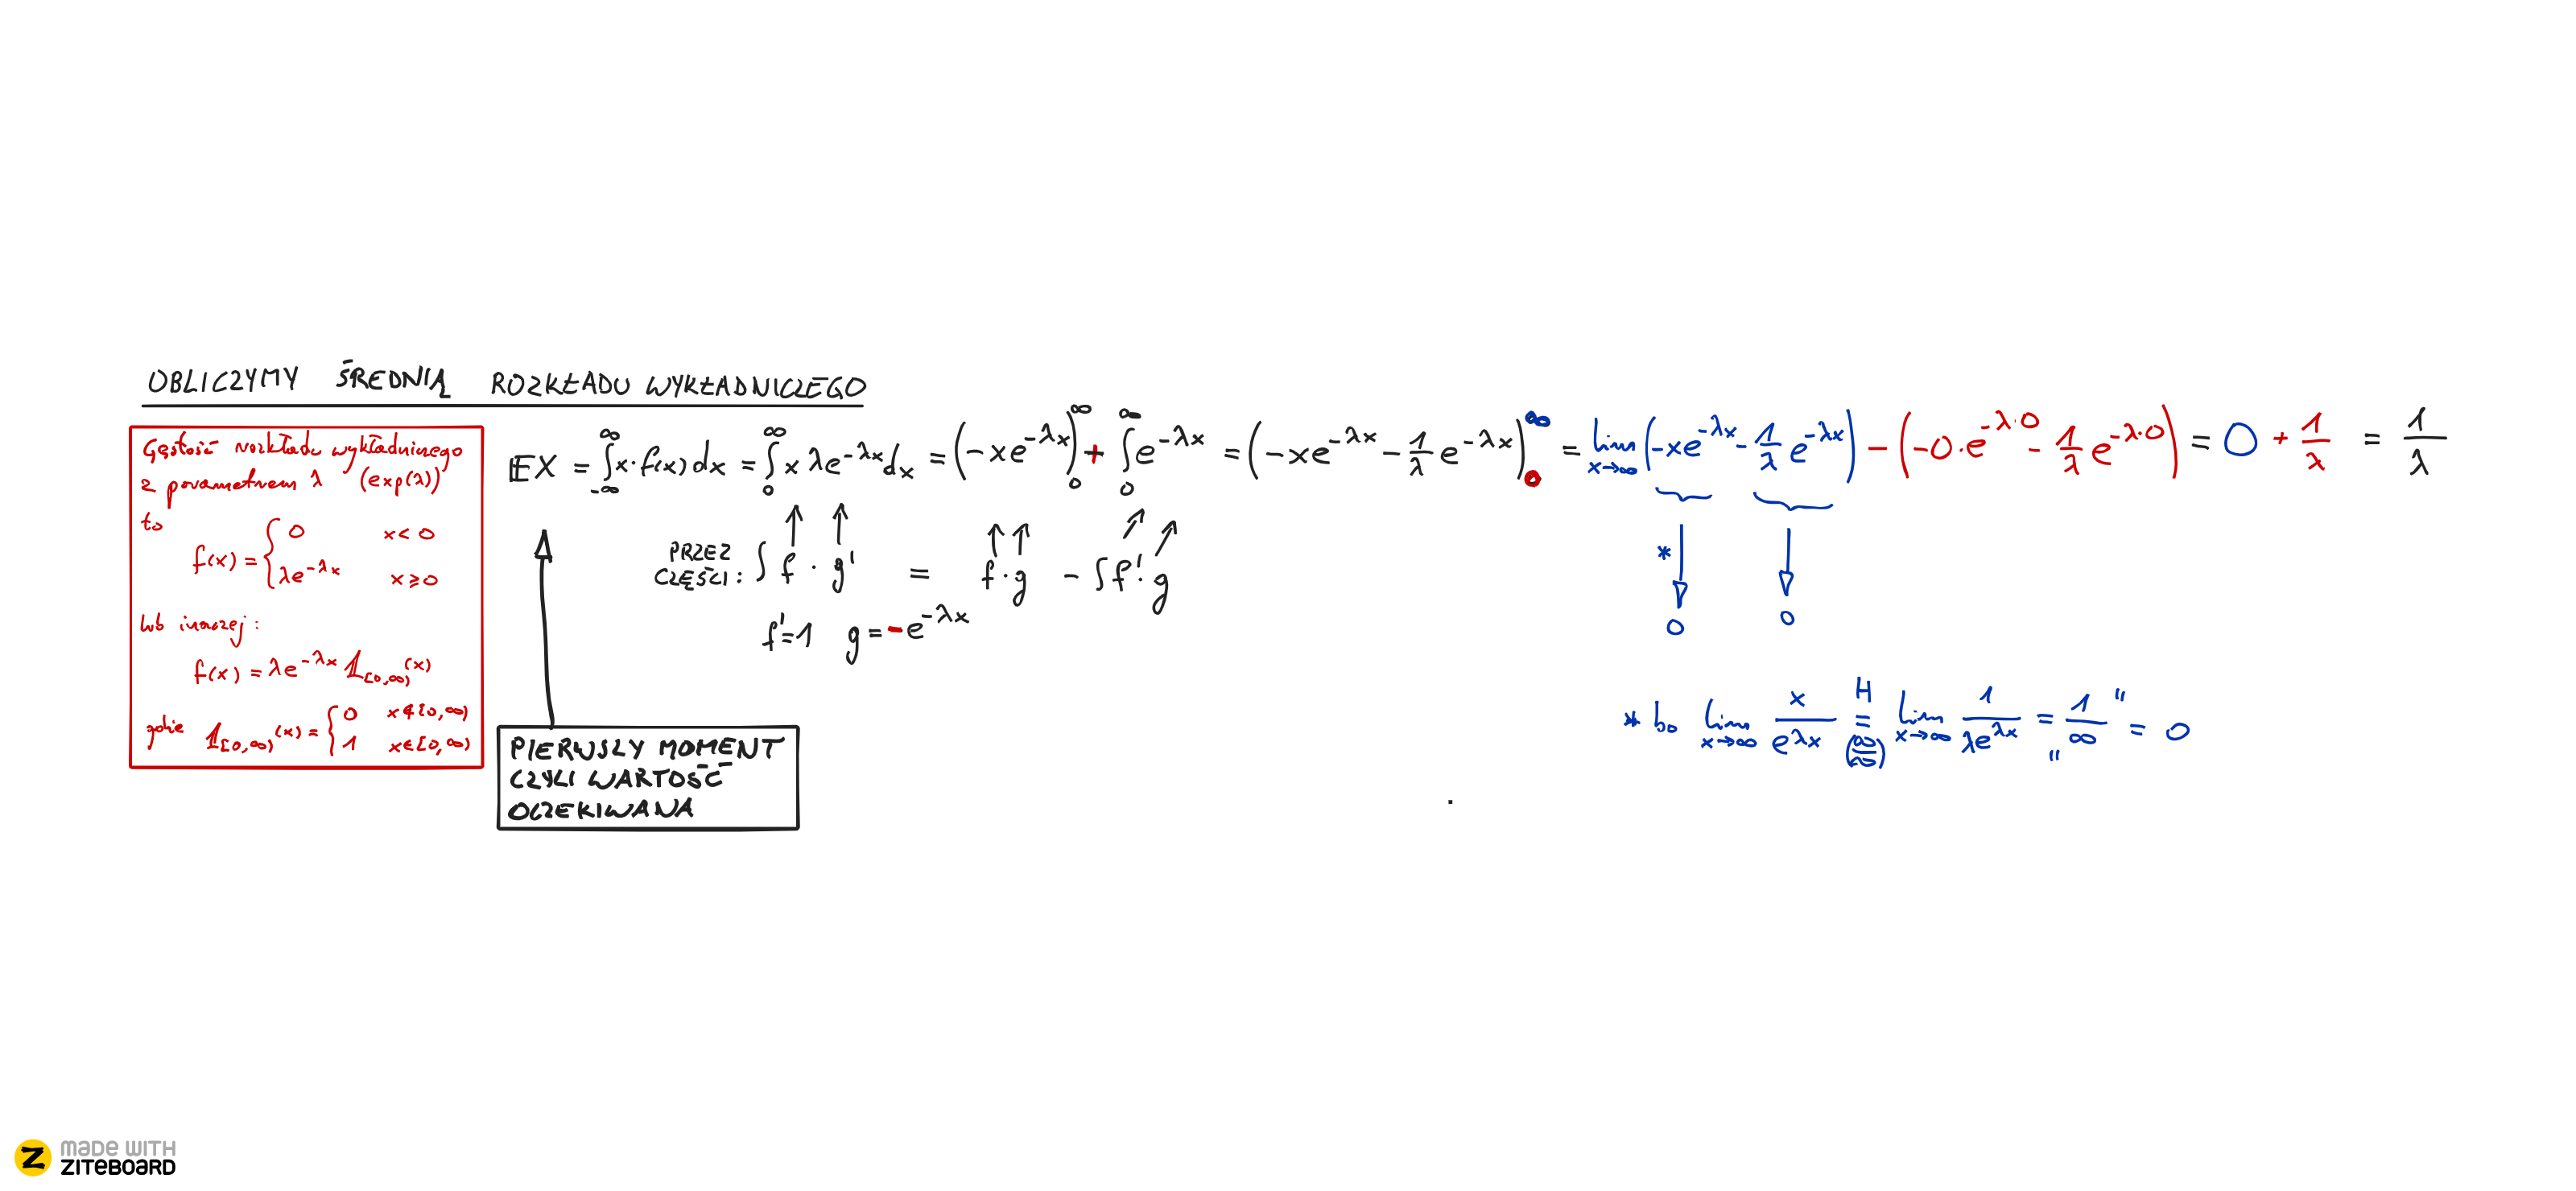 OBLICZYMY ŚREDNIĄ ROZKŁADU WYKŁADNICZEGO
Gęstość rozkładu wykładninego
z parametrem λ (exp(λ))
to
f(x) = { 0 x < 0
λe^{-λx} x ≥ 0
lub inaczej:
f(x) = λe^{-λx} 𝟙_{[0,∞)}(x)
gdzie 𝟙_{[0,∞)}(x) = { 0 x ∉ [0,∞)
1 x ∈ [0,∞)
EX = ∫_{-∞}^{∞} x · f(x) dx = ∫_{0}^{∞} x λe^{-λx} dx = (-xe^{-λx})_{0}^{∞} + ∫_{0}^{∞} e^{-λx} = (-xe^{-λx} - 1/λ e^{-λx})_{0}^{∞} = lim_{x→∞} (-xe^{-λx} - 1/λ e^{-λx}) - (-0·e^{-λ·0} - 1/λ e^{-λ·0}) = 0 + 1/λ = 1/λ
PRZEZ
CZĘŚCI: ∫ f · g' = f · g - ∫ f' · g
f' = 1 g = -e^{-λx}
* 0 0
PIERWSZY MOMENT
CZYLI WARTOŚĆ
OCZEKIWANA
* bo lim_{x→∞} x/e^{λx} =^{H}_{(∞/∞)} lim_{x→∞} 1/λe^{λx} = "1/∞" = 0
MADE WITH
ZITEBOARD